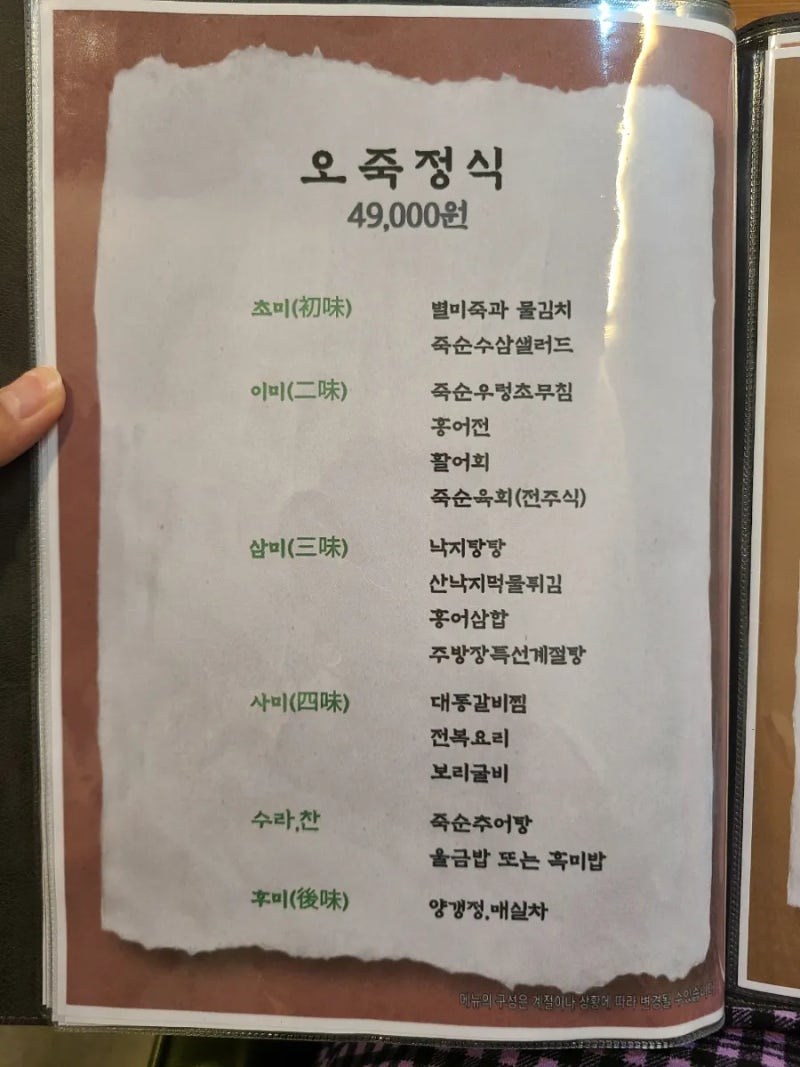 오죽정식
49,000원
초미(初味) 별미죽과 물김치
죽순수삼샐러드
이미(二味) 죽순우렁초무침
홍어전
활어회
죽순육회(전주식)
삼미(三味) 낙지탕탕
산낙지먹물튀김
홍어삼합
주방장특선계절탕
사미(四味) 대통갈비찜
전복요리
보리굴비
수라,찬 죽순추어탕
울금밥 또는 흑미밥
후미(後味) 양갱정,매실차
메뉴의 구성은 계절이나 상황에 따라 변경될 수있습니다